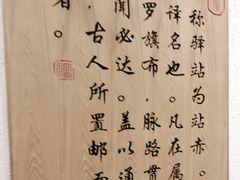 称驿站为站赤。
译名也。凡在属
罗旗布,脉路贯
闻必达。盖以通
古人所置邮而
者。